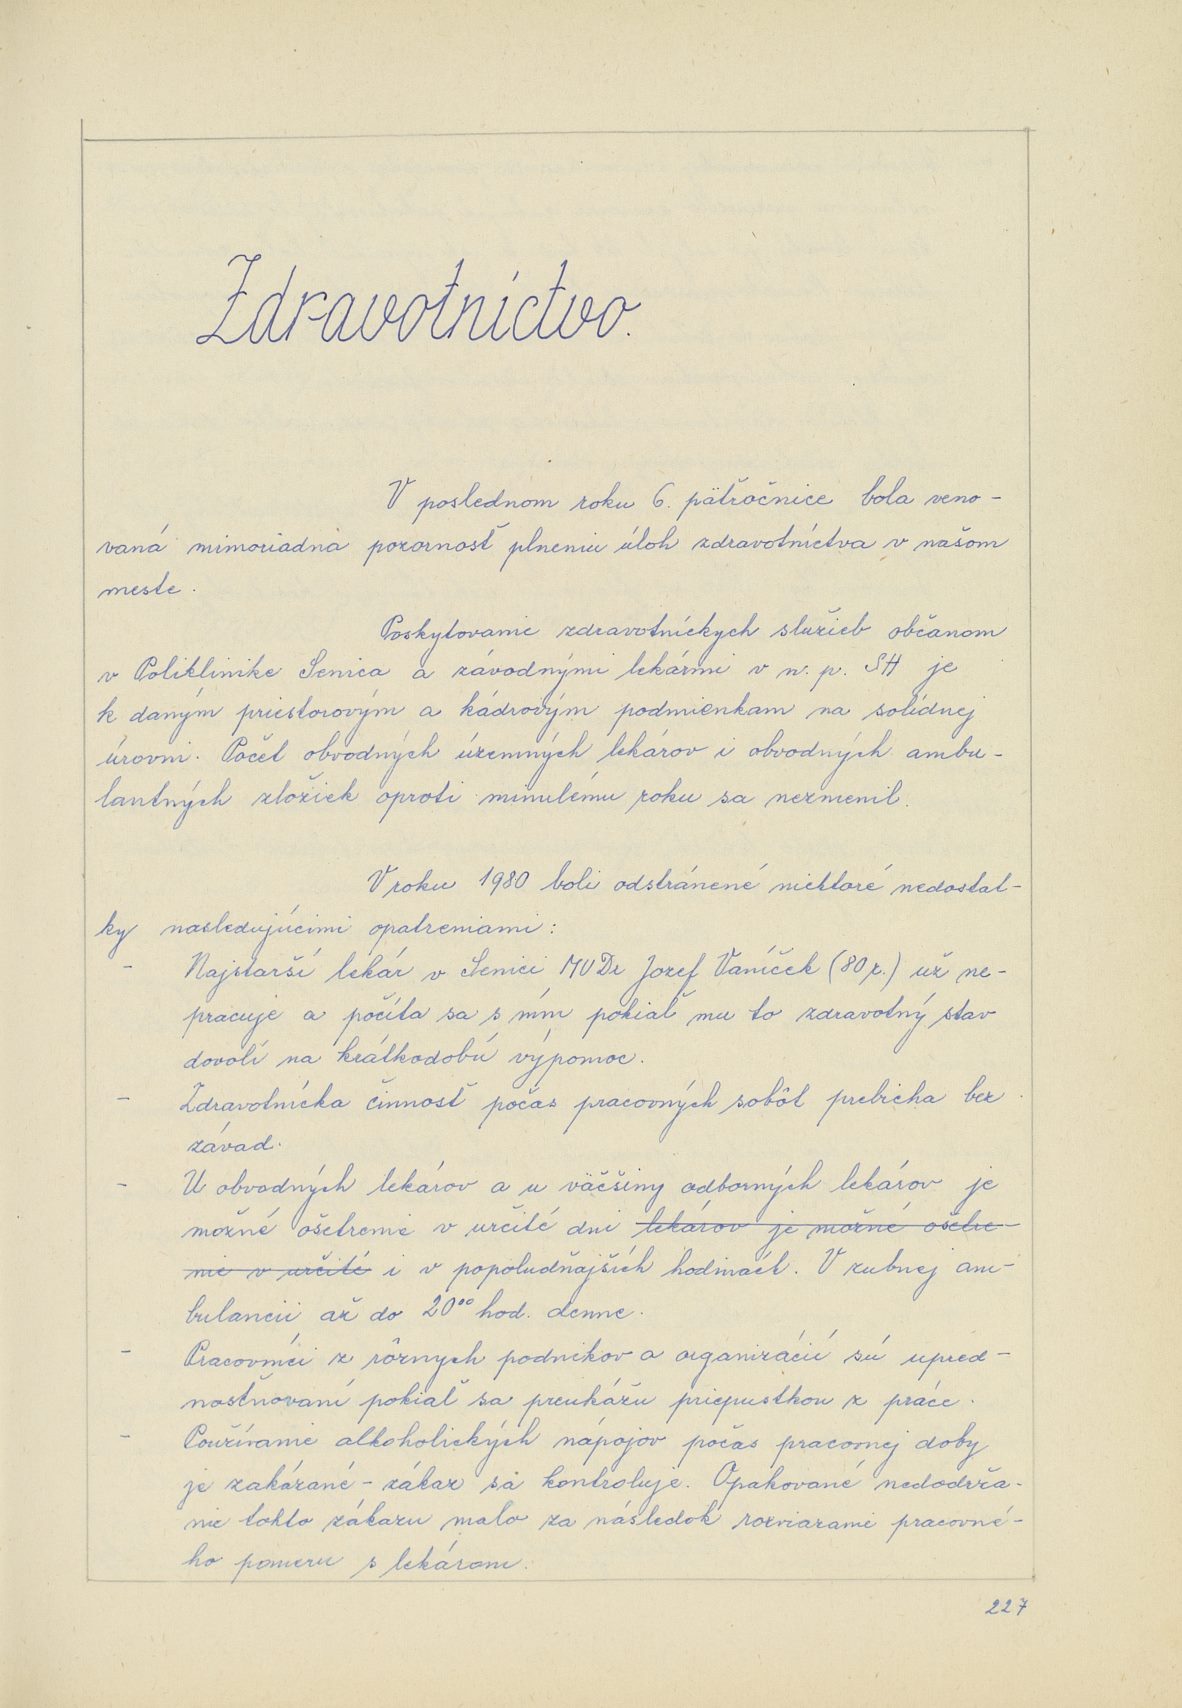 Zdravotníctvo.
V poslednom roku 6. päťročnice bola veno-
vaná mimoriadna pozornosť plneniu úloh zdravotníctva v našom
meste.
Poskytovanie zdravotníckych služieb občanom
v Poliklinike Senica a závodnými lekármi v n. p. SH je
k daným priestorovým a kádrovým podmienkam na solídnej
úrovni. Počet obvodných územných lekárov i obvodných ambu-
lantných zložiek oproti minulému roku sa nezmenil.
V roku 1980 boli odstránené niektoré nedostat-
ky nasledujúcimi opatreniami:
- Najstarší lekár v Senici MUDr Jozef Vaníček (80 r.) už ne-
pracuje a počíta sa s ním pokiaľ mu to zdravotný stav
dovolí na krátkodobú výpomoc.
- Zdravotnícka činnosť počas pracovných sobôt prebieha bez
závad.
- U obvodných lekárov a u väčšiny odborných lekárov je
možné ošetrenie v určité dni lekárov je možné ošetre-
nie v určité i v popoludňajších hodinách. V zubnej am-
bulancii až do 20⁰⁰ hod. denne.
- Pracovníci z rôznych podnikov a organizácií sú upred-
nostňovaní pokiaľ sa preukážu priepustkou z práce.
- Používanie alkoholických nápojov počas pracovnej doby
je zakázané - zákaz sa kontroluje. Opakované nedodrža-
nie tohto zákazu malo za následok rozviazanie pracovné-
ho pomeru s lekárom.
227